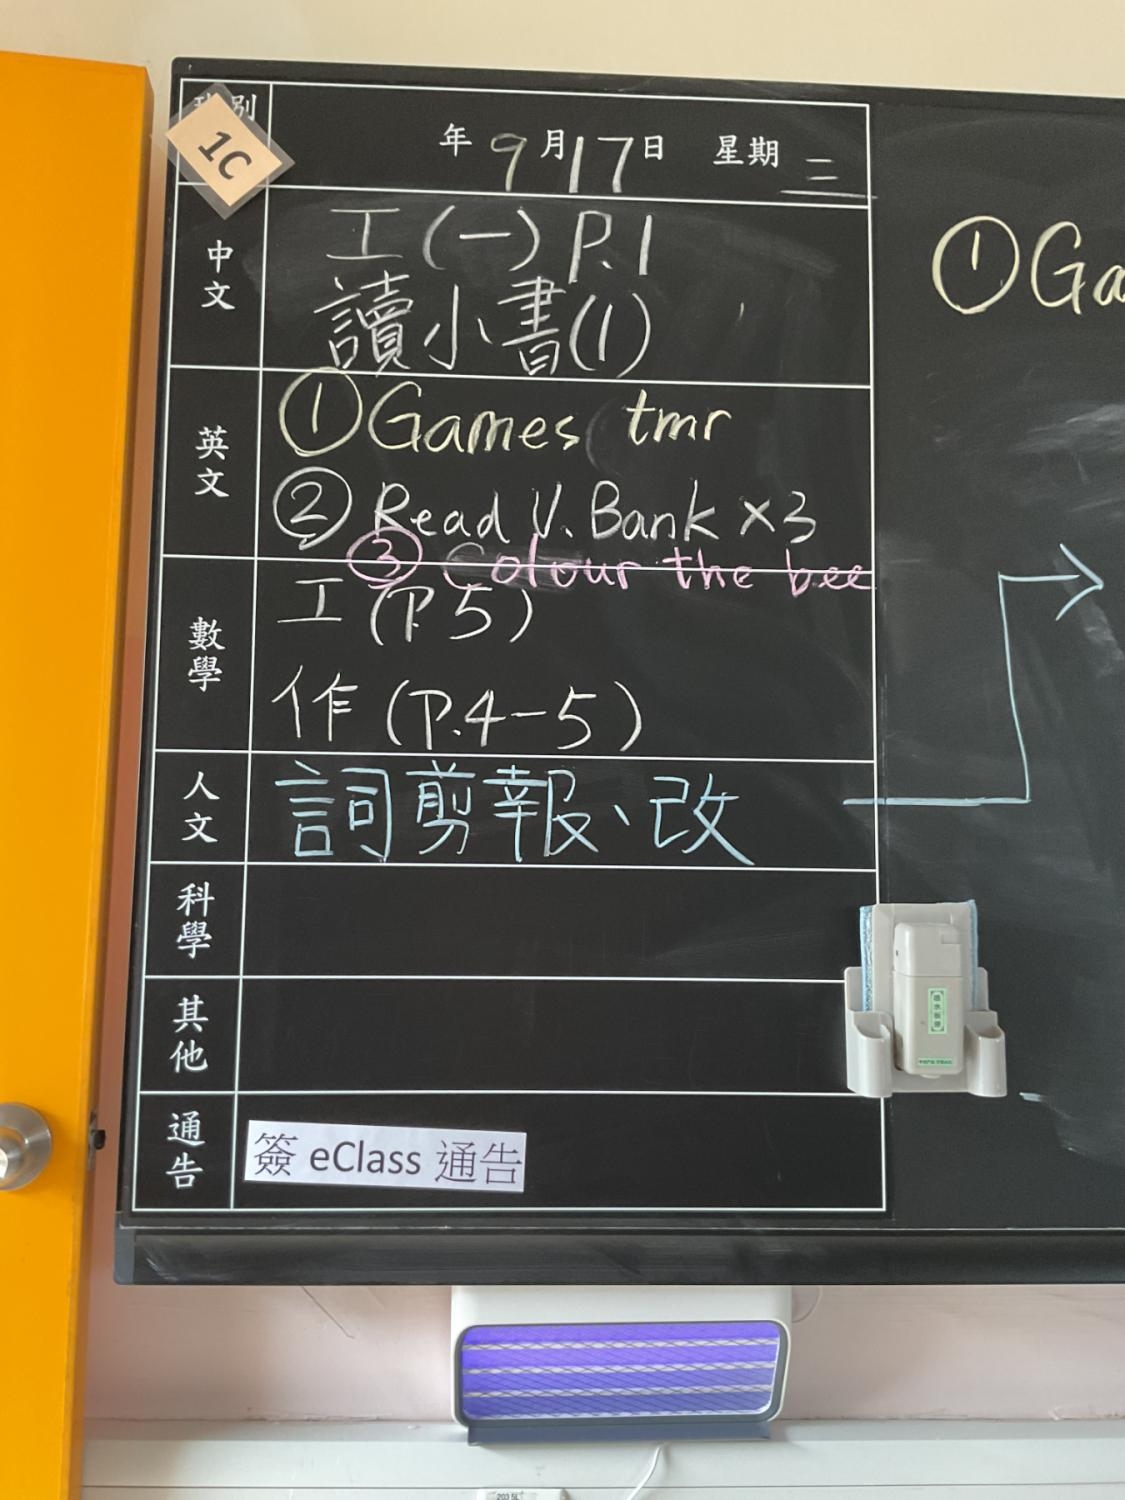 1C
年 9 月 17 日 星期 三
中文
工(一) P.1
讀小書(1)
英文
① Games tmr
② Read V. Bank ×3
③ Colour the bee
數學
工 (P.5)
作 (P.4-5)
人文
詞剪報、改
科學
其他
通告
簽 eClass 通告
① Ga